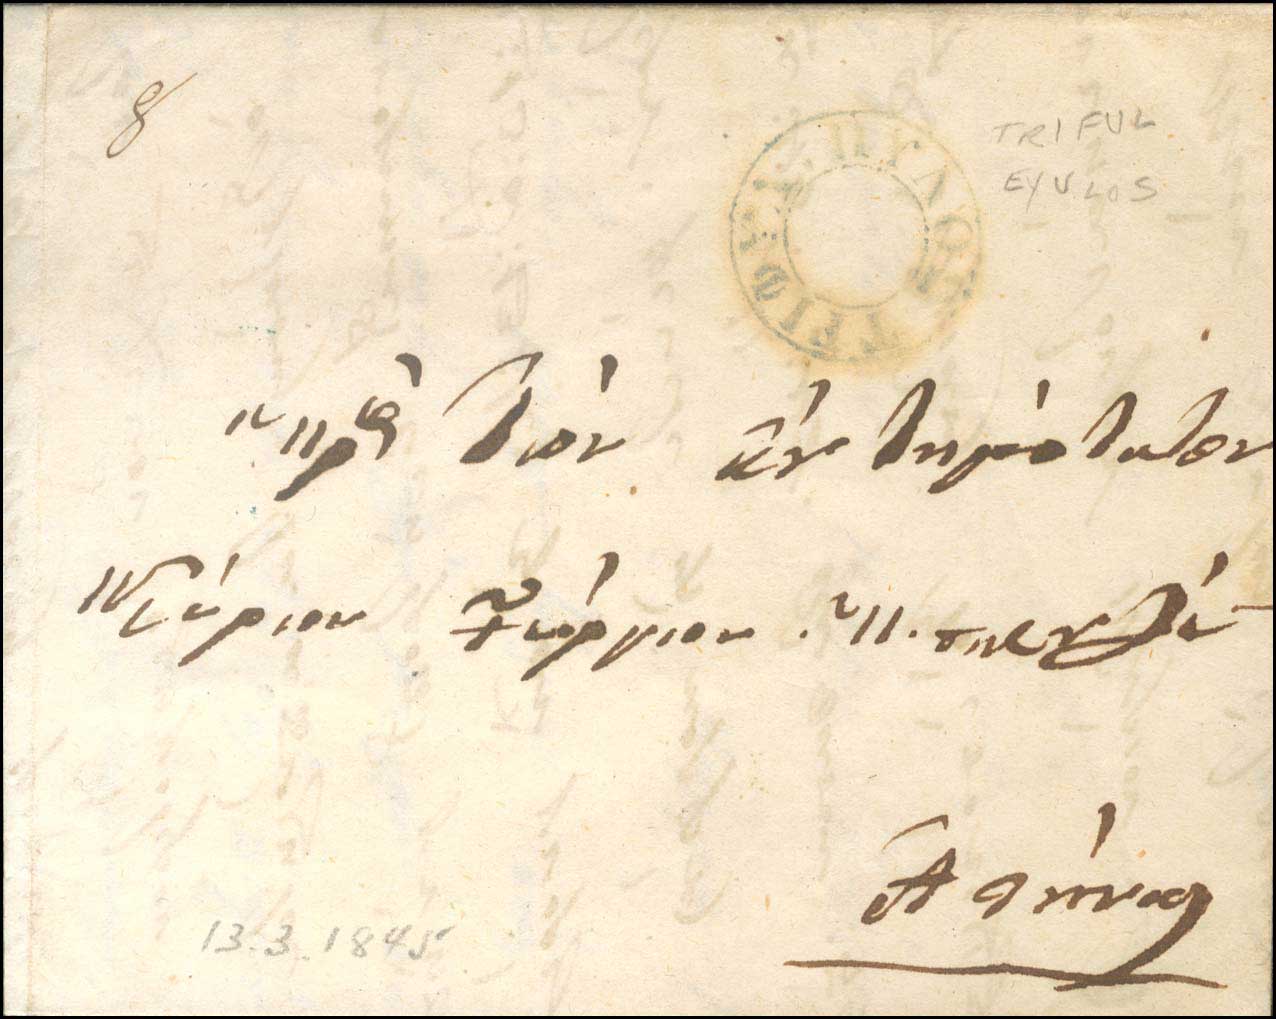 8
ΤΡΙΦΥΛ. ΠΥΛΟΣ
TRIFUL
EYULOS
Πρὸς Τὸν ἐντιμότατον
Κύριον Γεώργιον Π.
Ἀθήνας
13.3.1845